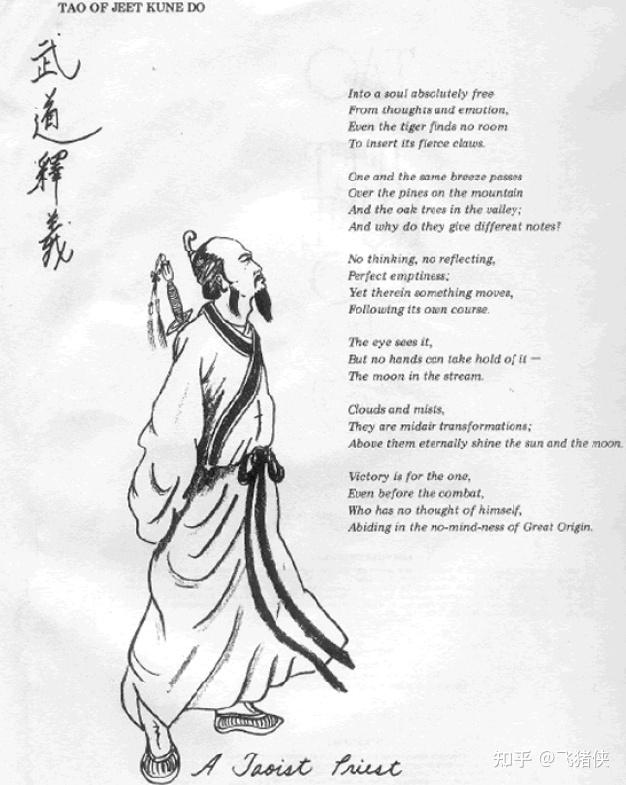 TAO OF JEET KUNE DO
武道釋義
Into a soul absolutely free
From thoughts and emotion,
Even the tiger finds no room
To insert its fierce claws.
One and the same breeze passes
Over the pines on the mountain
And the oak trees in the valley;
And why do they give different notes?
No thinking, no reflecting,
Perfect emptiness;
Yet therein something moves,
Following its own course.
The eye sees it,
But no hands can take hold of it —
The moon in the stream.
Clouds and mists,
They are midair transformations;
Above them eternally shine the sun and the moon.
Victory is for the one,
Even before the combat,
Who has no thought of himself,
Abiding in the no-mind-ness of Great Origin.
A Taoist Priest
知乎 @飞猪侠